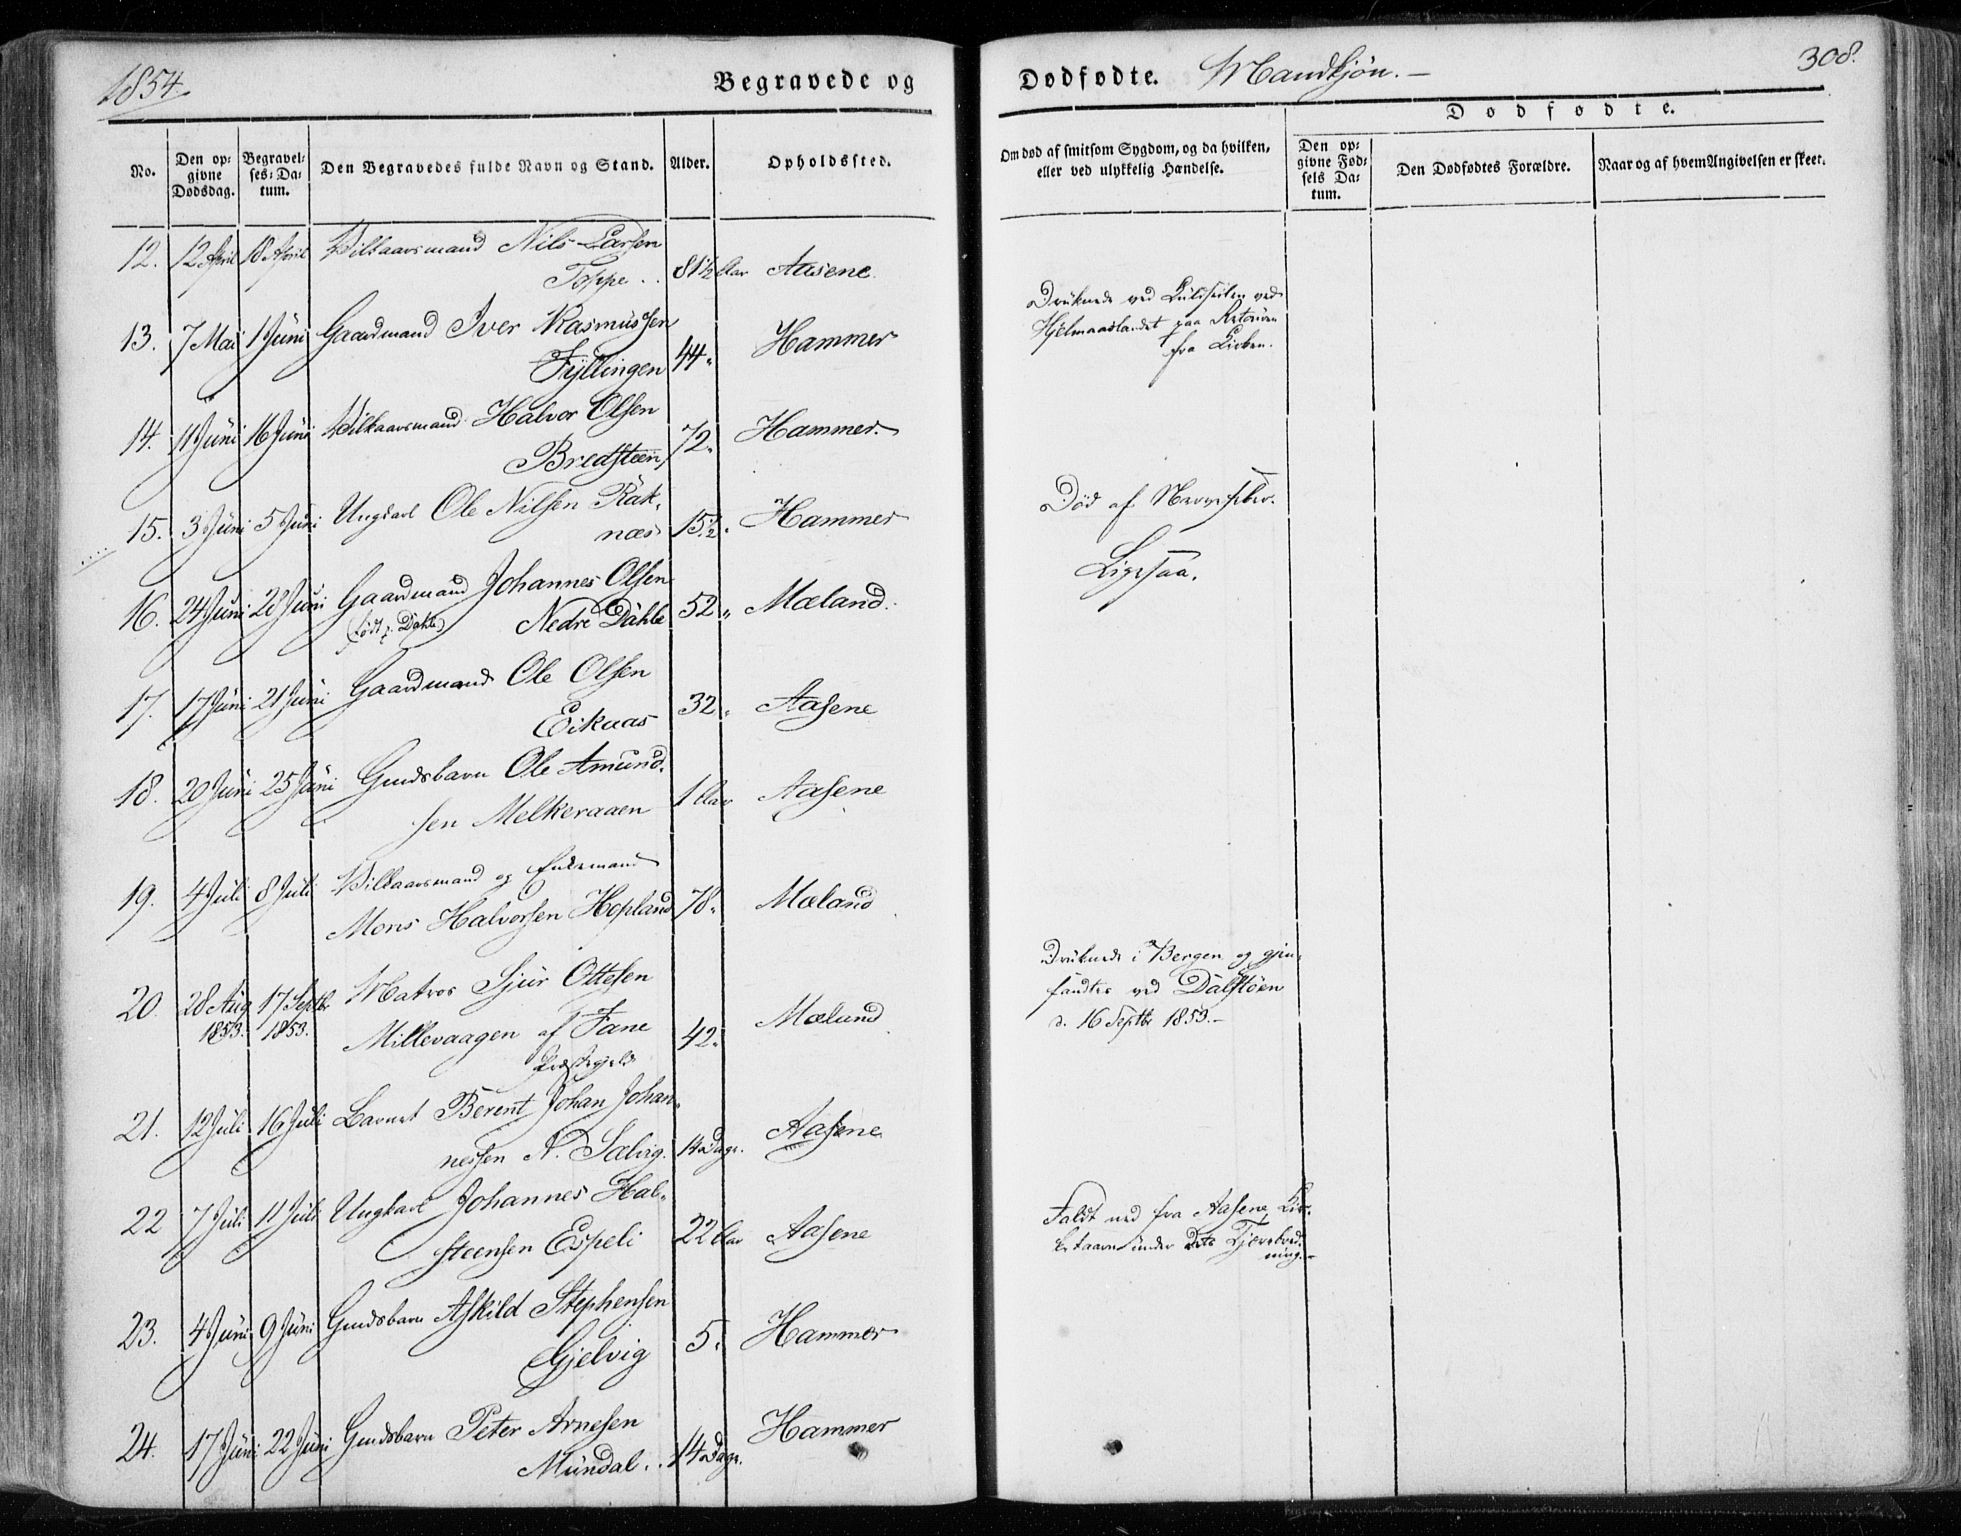 1854.
Begravede og
Dødfødte. Mandkjøn.
308.
No.
Den opgivne Dødsdag.
Begravelses-Datum.
Den Begravedes fulde Navn og Stand.
Alder.
Opholdssted.
Om død af smitsom Sygdom, og da hvilken,
eller ved ulykkelig Hændelse.
Dødfødte.
Den opgivne Fødsels Datum.
Den Dødfødtes Forældre.
Naar og af hvem Angivelsen er skeet.
12. 12 April 18 April Vilkaarsmand Nils Larsen
Toppe .. 81½ Aar Aasene.
13. 7 Mai 1 Juni Gaardmand Iver Rasmussen
Fyllingen 44 " Hammer
Druknede ved Kulseilen ved
Hjelmaaslandet paa Retouren
fra Kirken.
14. 11 Juni 16 Juni Vilkaarsmand Halvor Olsen
Bredsteen 72 " Hammer.
15. 3 Juni 5 Juni Ungkarl Ole Nilsen Rak-
næs 15½ " Hammer
Død af Nervefeber.
16. 24 Juni 28 Juni Gaardmand Johannes Olsen
(født p. Dahle) Nedre Dahle 52 " Mæland.
Ligesaa.
17. 17 Juni 21 Juni Gaardmand Ole Olsen
Eikaas 32 " Aasene
18. 20 Juni 25 Juni Gmdsbarn Ole Amund-
sen Melkeraaen 1 Aar Aasene
19. 4 Juli 8 Juli Vilkaarsmand og Enkemand
Mons Halvorsen Hopland 78 " Mæland
20. 28 Aug 17 Septbr Matros Sjur Ottesen
1853. 1853. Millevaagen af Fane
Præstegjeld 42 " Mæland
Druknede i Bergen og gjen-
fandtes ved Dalstøen
d. 16 Septbr 1853.
21. 12 Juli 16 Juli Barnet Berent Johan Johan-
nessen N. Salvig. 14 Dage. Aasene
22 7 Juli 11 Juli Ungkarl Johannes Hal-
steensen Espeli 22 Aar Aasene
Faldt ned fra Aasene Kir-
ketaarn under dets Tjærebred-
ning.
23. 4 Juni 9 Juni Gmdsbarn Askild Stephensen
Gjelvig 5 " Hammer
24. 17 Juni 22 Juni Gmdsbarn Peter Arnesen
Mundal .. 14 Dage. Hammer